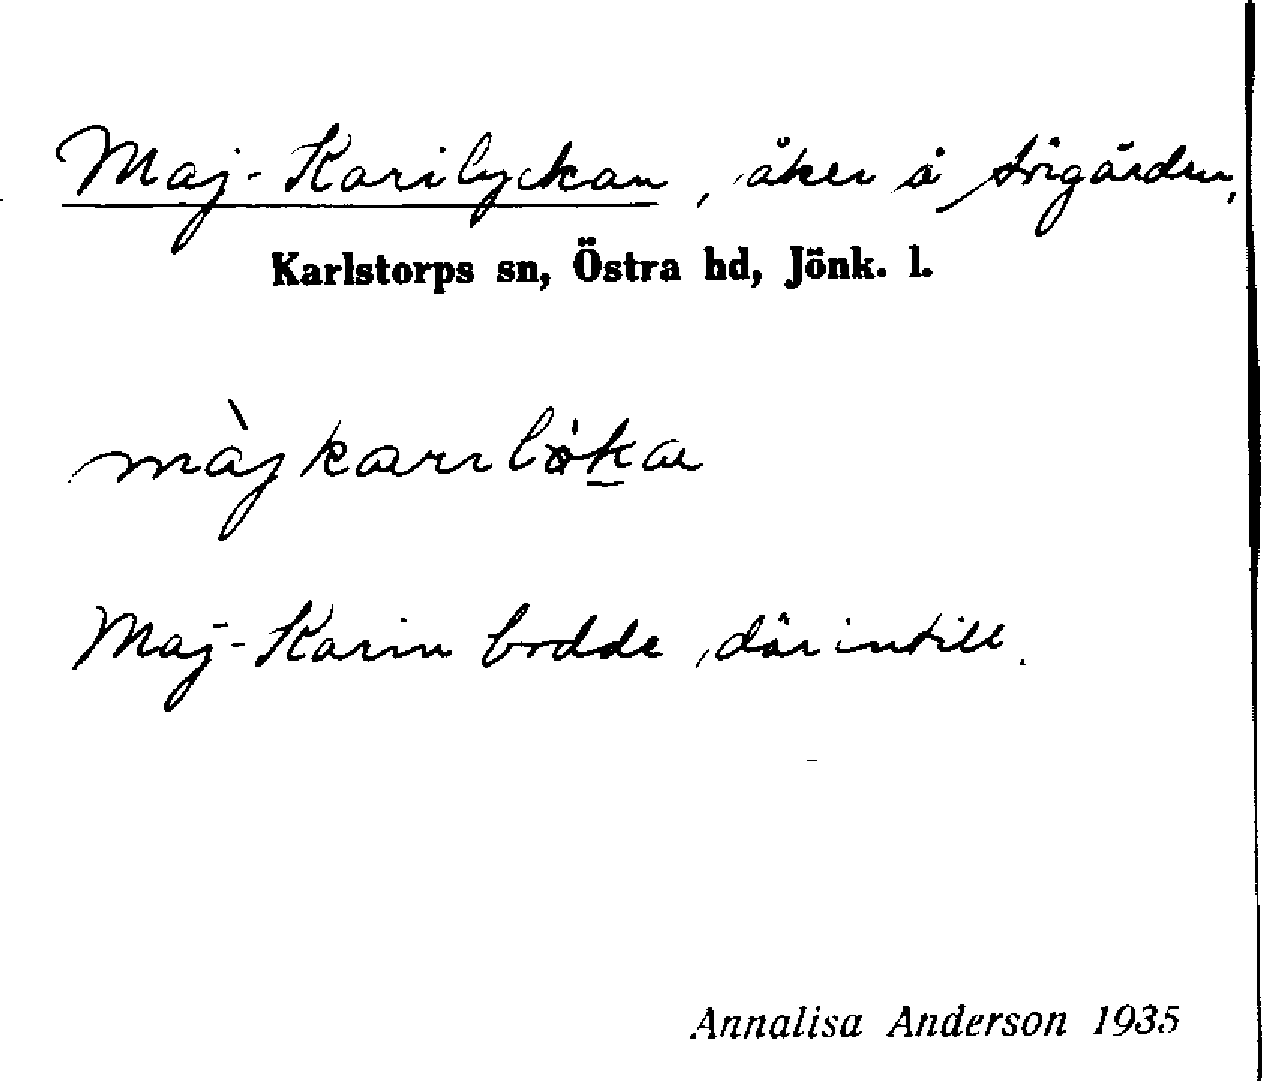 Maj-Karilyckan, åker å Sörgården,
Karlstorps sn, Östra hd, Jönk. l.
Maj-Karin bodde därintill.
Annalisa Anderson 1935